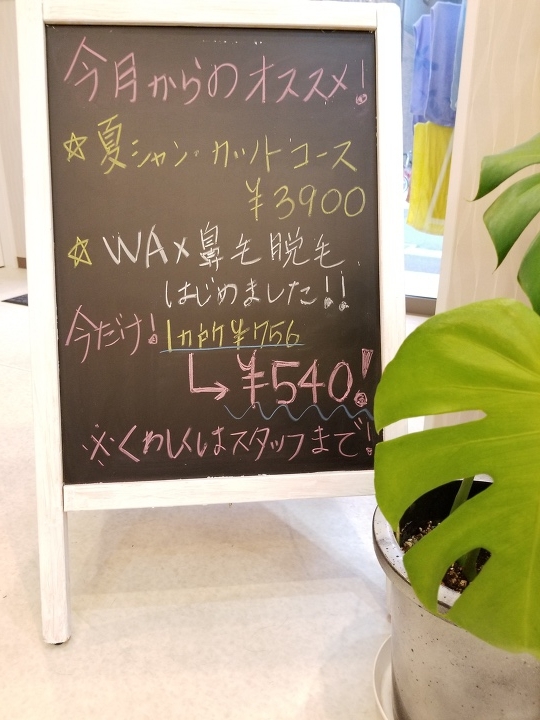 今月からのオススメ!
☆夏シャン・カットコース
¥3900
☆WAX鼻毛脱毛、
はじめました!!
今だけ!1カ所¥756
↳¥540!
※くわしくはスタッフまで!